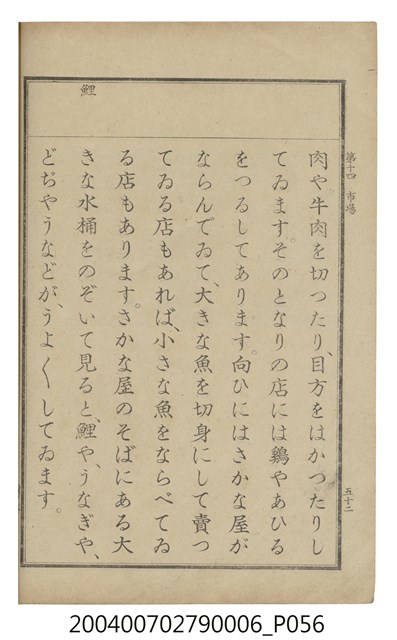 第十四 市場
五十二
鯉
肉や牛肉を切つたり、目方をはかつたりし
てゐます。そのとなりの店には鷄やあひる
をつるしてあります。向ひにはさかな屋が
ならんでゐて、大きな魚を切身にして賣つ
てゐる店もあれば、小さな魚をならべてゐ
る店もあります。さかな屋のそばにある大
きな水桶をのぞいて見ると、鯉や、うなぎや、
どぢやうなどが、うよ〱してゐます。
200400702790006_P056